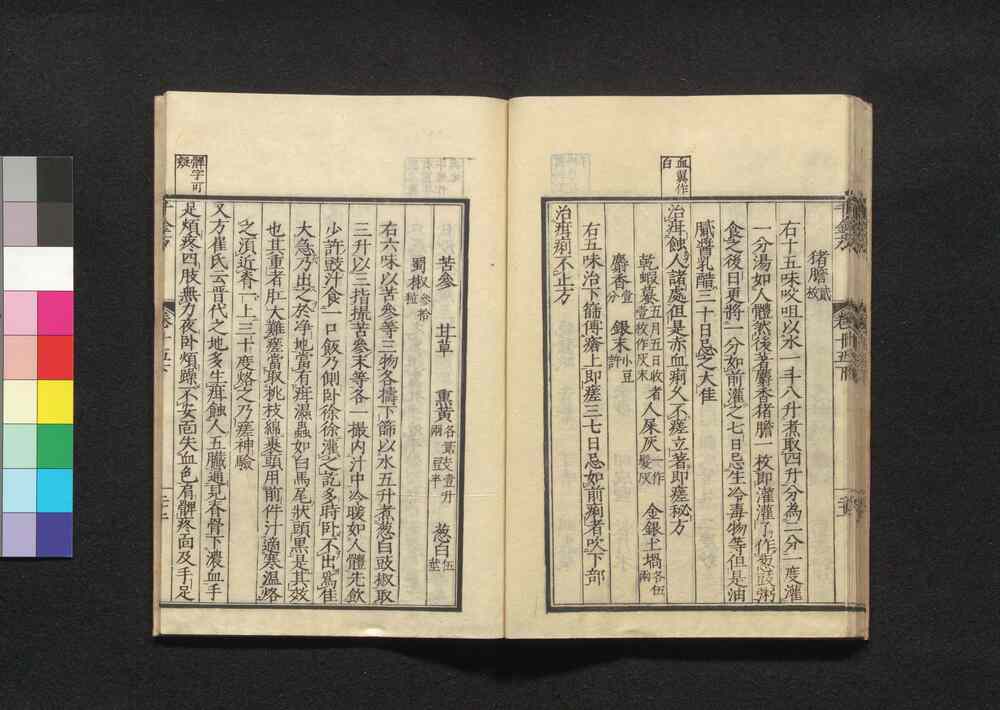 血翼作
白
猪膽貳枚
右十五味㕮咀以水一斗八升煮取四升分為二分一度灌
一分湯如人體然後著麝香猪膽一枚即灌灌了作葱豉粥
食之後日更將一分如前灌之七日忌生冷毒物等但是油
膩醬乳醋三十日忌之大佳
治疳蝕人諸處但是赤血痢久不瘥立著即瘥秘方
乾蝦蟇五月五日收者壹枚作灰末 人屎灰一作髮灰 金銀土堝各伍兩
麝香壹分 銀末小豆許
右五味治下篩傅瘡上即瘥三七日忌如前痢者吹下部
治疳痢不止方
髀字可
疑
苦參 甘草 熏黃各貳兩 豉壹升半 葱白伍莖
蜀椒參拾粒
右六味以苦參等三物各擣下篩以水五升煮葱白豉椒取
三升以三指撮苦參末等各一撮內汁中冷暖如人體先飲
少許豉汁食一口飯乃側臥徐徐灌之訖多時臥不出為佳
大急乃出之於净地當有疳濕蟲如白馬尾狀頭黑是其效
也其重者肛大難瘥當取桃枝綿裹頭用前件汁適寒溫烙
之須近脊一上三十度烙之乃瘥神驗
又方崔氏云晉代之地多生疳蝕人五臟通見脊骨下膿血手
足煩疼四肢無力夜卧煩躁不安面失血色肩髀疼面及手足